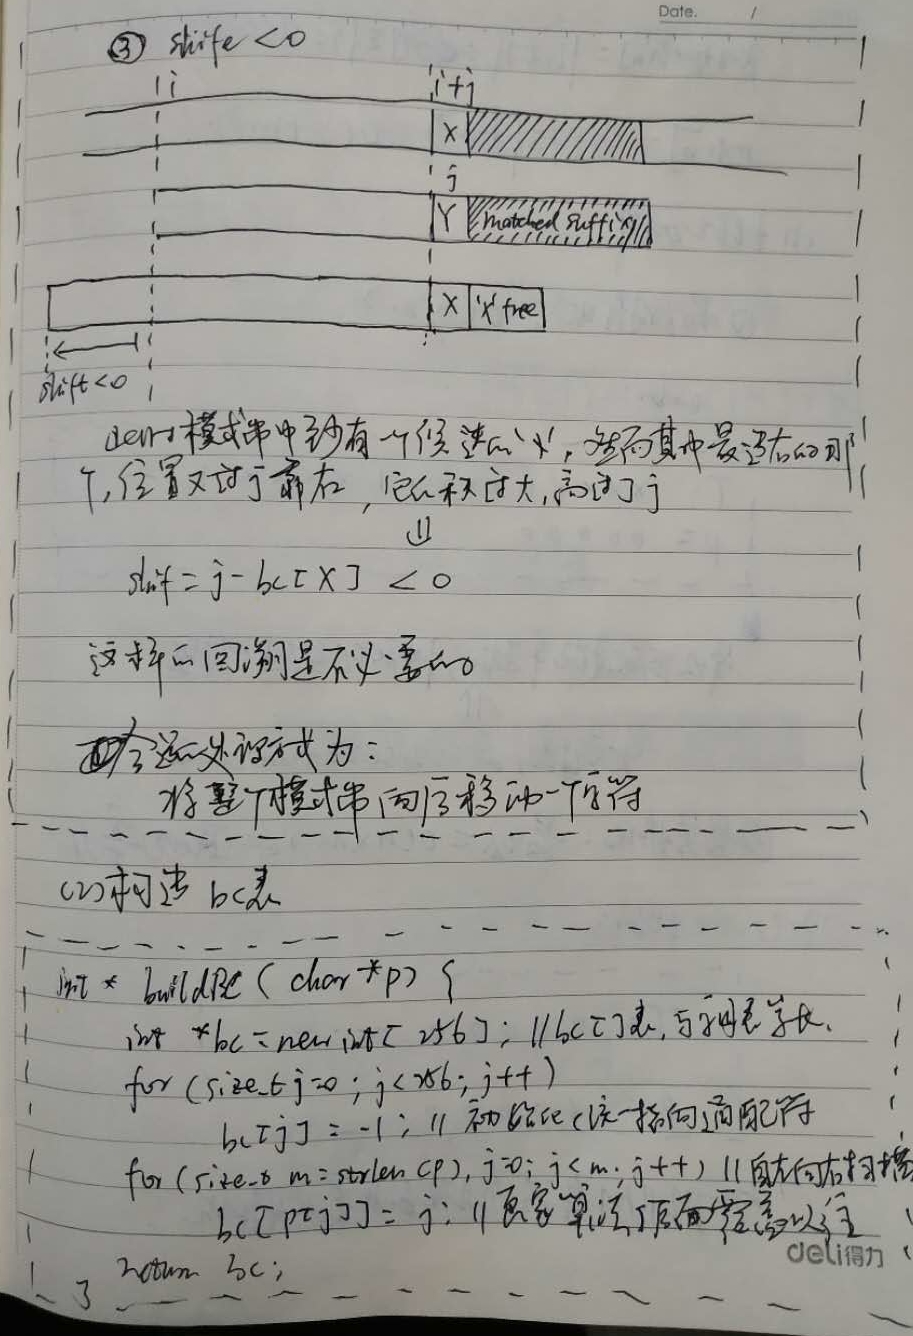 Date. /
③ shife <0
i i+j
X
j
Y matched suffix
X 'X' free
shift<0
模式串中至少有一个候选的'X', 然而其中最靠右的那
个, 位置又过于靠右, 它的秩过大, 高过了 j
⇓
shif = j - bc[X] < 0
这样的回溯是不必要的
合适的处理方式为:
将整个模式串向后移动一个字符
(2)构造 bc表
int * buildBC ( char *p) {
int *bc = new int[ 256]; //bc[]表, 与字母表等长.
for (size_t j=0 ; j<256; j++)
bc[j] = -1; // 初始化(统一指向通配符
for (size_t m=strlen(p), j=0; j<m; j++) //自左向右扫描
bc[p[j]] = j; //画家算法
deli得力
return bc;
}